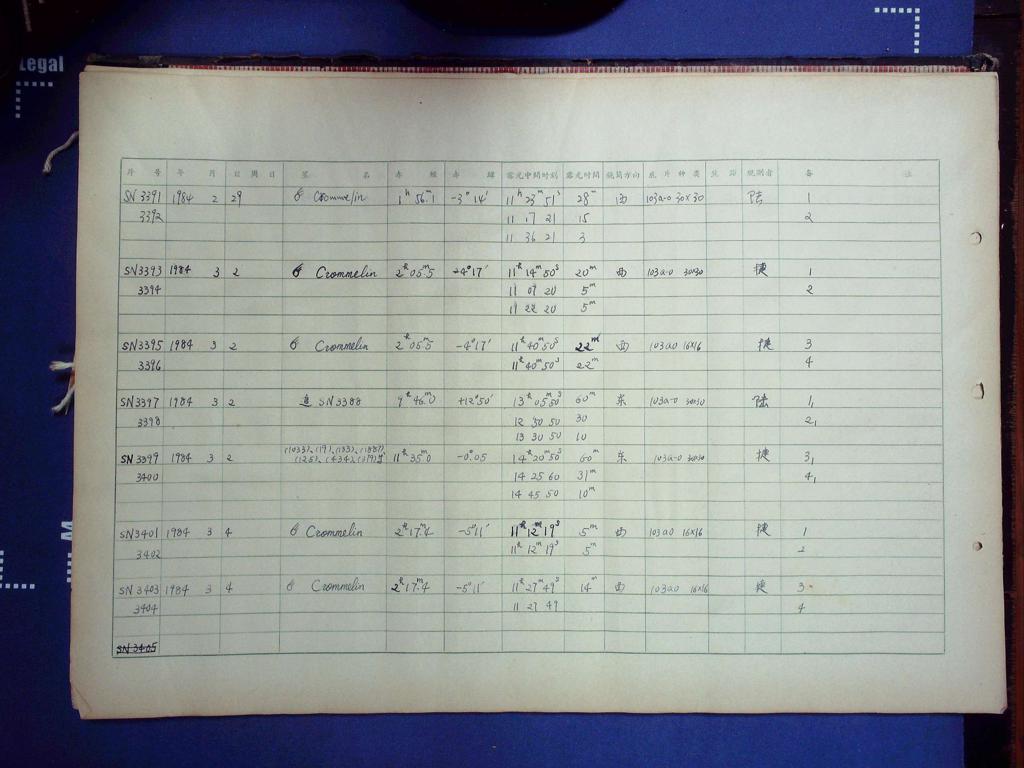 Legal
序 号 年 月 日 周 日 星 名 赤 經 赤 緯 露光中間时刻 露光时间 鏡筒方向 底 片 种 类 观測者 备 注
SN 3391 1984 2 29 Crommelin 1ʰ 56ᵐ.1 -3° 14′ 11ʰ 23ᵐ 51ˢ 28ᵐ 西 103a-o 30×30 陆 1
3392 11 17 21 15 2
11 36 21 3
SN3393 1984 3 2 Crommelin 2ʰ 05ᵐ.5 -4° 17′ 11ʰ 14ᵐ 50ˢ 20ᵐ 西 103a-o 30×30 捷 1
3394 11 09 20 5ᵐ 2
11 22 20 5ᵐ
SN3395 1984 3 2 Crommelin 2ʰ 05ᵐ.5 -4° 17′ 11ʰ 40ᵐ 50ˢ 22ᵐ 西 103a0 16×16 捷 3
3396 11ʰ 40ᵐ 50ˢ 22ᵐ 4
SN3397 1984 3 2 追 SN3388 9ʰ 46ᵐ.0 +12° 50′ 13ʰ 05ᵐ 50ˢ 60ᵐ 东 103a-0 30×30 陆 1,
3398 12 50 50 30 2,
13 30 50 10
(1033), (191), (133), (1887),
SN 3399 1984 3 2 (125), (434), (179) 11ʰ 35ᵐ.0 -0°.05 14ʰ 20ᵐ 50ˢ 60ᵐ 东 103a-0 30×30 捷 3,
3400 14 25 60 31ᵐ 4,
14 45 50 10ᵐ
SN3401 1984 3 4 Crommelin 2ʰ 17ᵐ.4 -5° 11′ 11ʰ 12ᵐ 19ˢ 5ᵐ 西 103a0 16×16 捷 1
3402 11ʰ 12ᵐ 19ˢ 5ᵐ 2
SN 3403 1984 3 4 Crommelin 2ʰ 17ᵐ.4 -5° 11′ 11ʰ 27ᵐ 49ˢ 14ᵐ 西 103a0 16×16 捷 3
3404 11 27 49 4
SN 3405